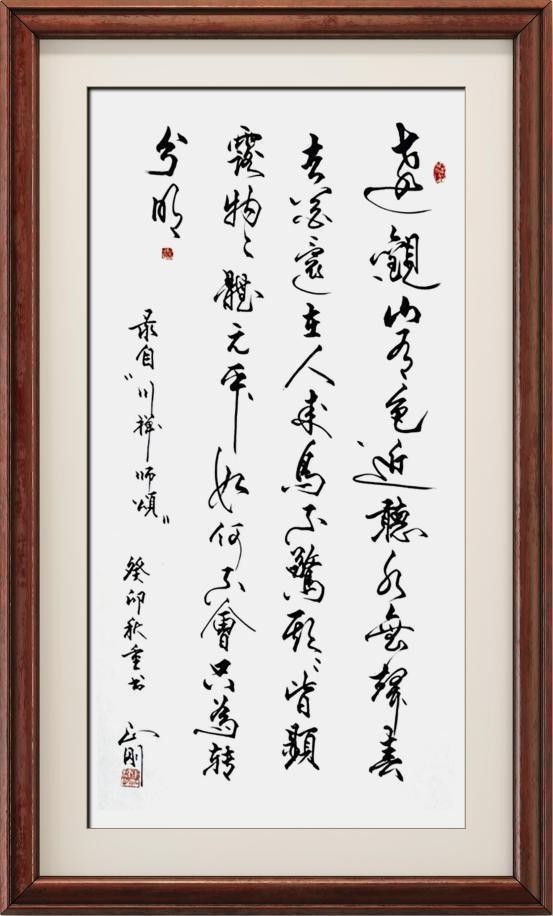 遠觀山有色近聽水無聲春
去花還在人來鳥不驚頭〻皆顯
露物〻體元平如何不會只為转
分明
录自“川禪师頌” 癸卯秋重书 正刚